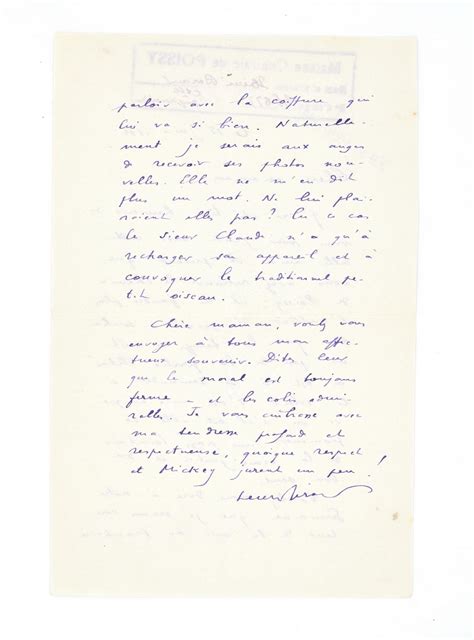 parloir avec la coiffure qui
lui va si bien. Naturelle-
ment je serais aux anges
de recevoir ses photos nou-
velles. Elle ne m'en dit
plus un mot. Ne lui plai-
raient elles pas ? En ce cas
le sieur Claude n'a qu'à
recharger son appareil et à
convoquer le traditionnel pe-
tit oiseau.
Chère maman, voulez vous
envoyer à tous mon affec-
tueux souvenir. Dites leur
que le moral est toujours
ferme - et les colis admi-
rables. Je vous embrasse avec
ma tendresse profond et
respectueuse, quoique respect
et Mickey jurent un peu !